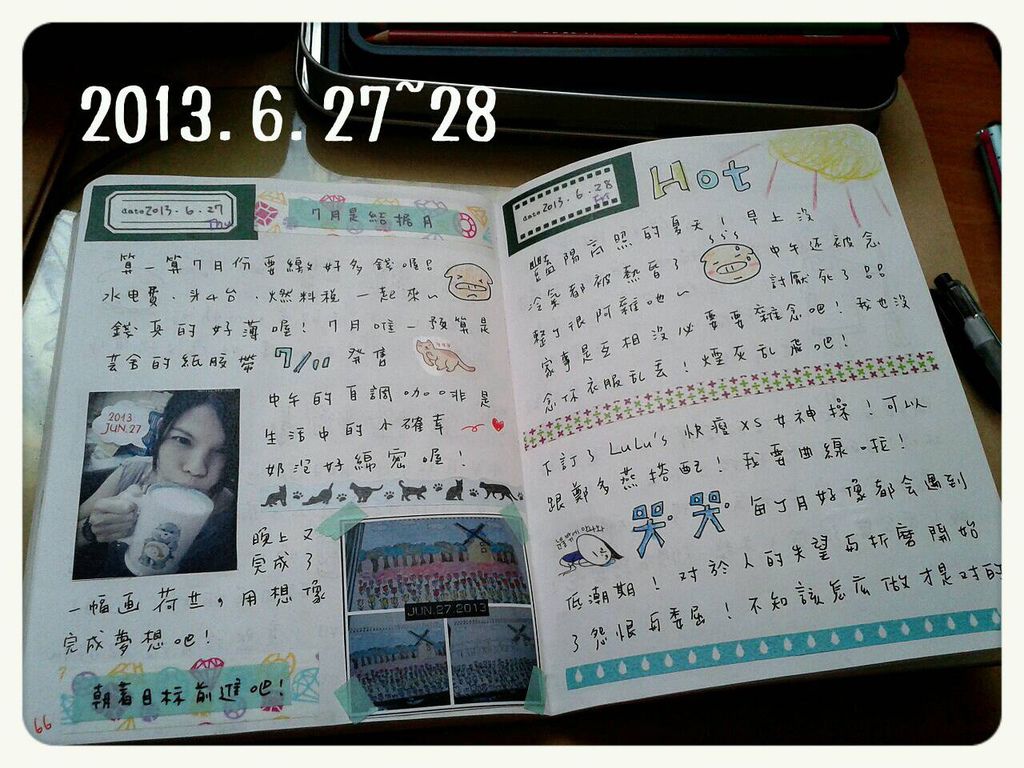 2013.6.27~28
date 2013.6.27
Thu
7月是結据月
算一算7月份要繳好多錢喔!!
水电費、第4台、燃料稅 一起來~
錢真的好薄喔！7月唯一預算是
芸舍的紙胶帶 7/11 発售
2013
JUN.27
中午的自調咖啡是
生活中的小確幸
奶泡好綿密喔！
晚上又
完成了
一幅画荷兰，用想像
完成夢想吧！
JUN.27.2013
朝着目标前進吧！
66
date 2013.6.28
Fri
Hot
豔陽高照的夏天！早上沒
冷氣都被熱昏了 中午还被念
整了很阿雜吧~ 討厭死了
家事是互相沒必要要雜念吧！我也沒
念你衣服乱丟！煙灰乱飛吧！
下訂了LuLu's 快瘦XS女神操！可以
跟鄭多燕搭配！我要曲線啦！
哭。哭。每个月好像都会遇到
低潮期！对於人的失望与折磨開始
了怨恨与委屈！不知該怎庅做才是对的